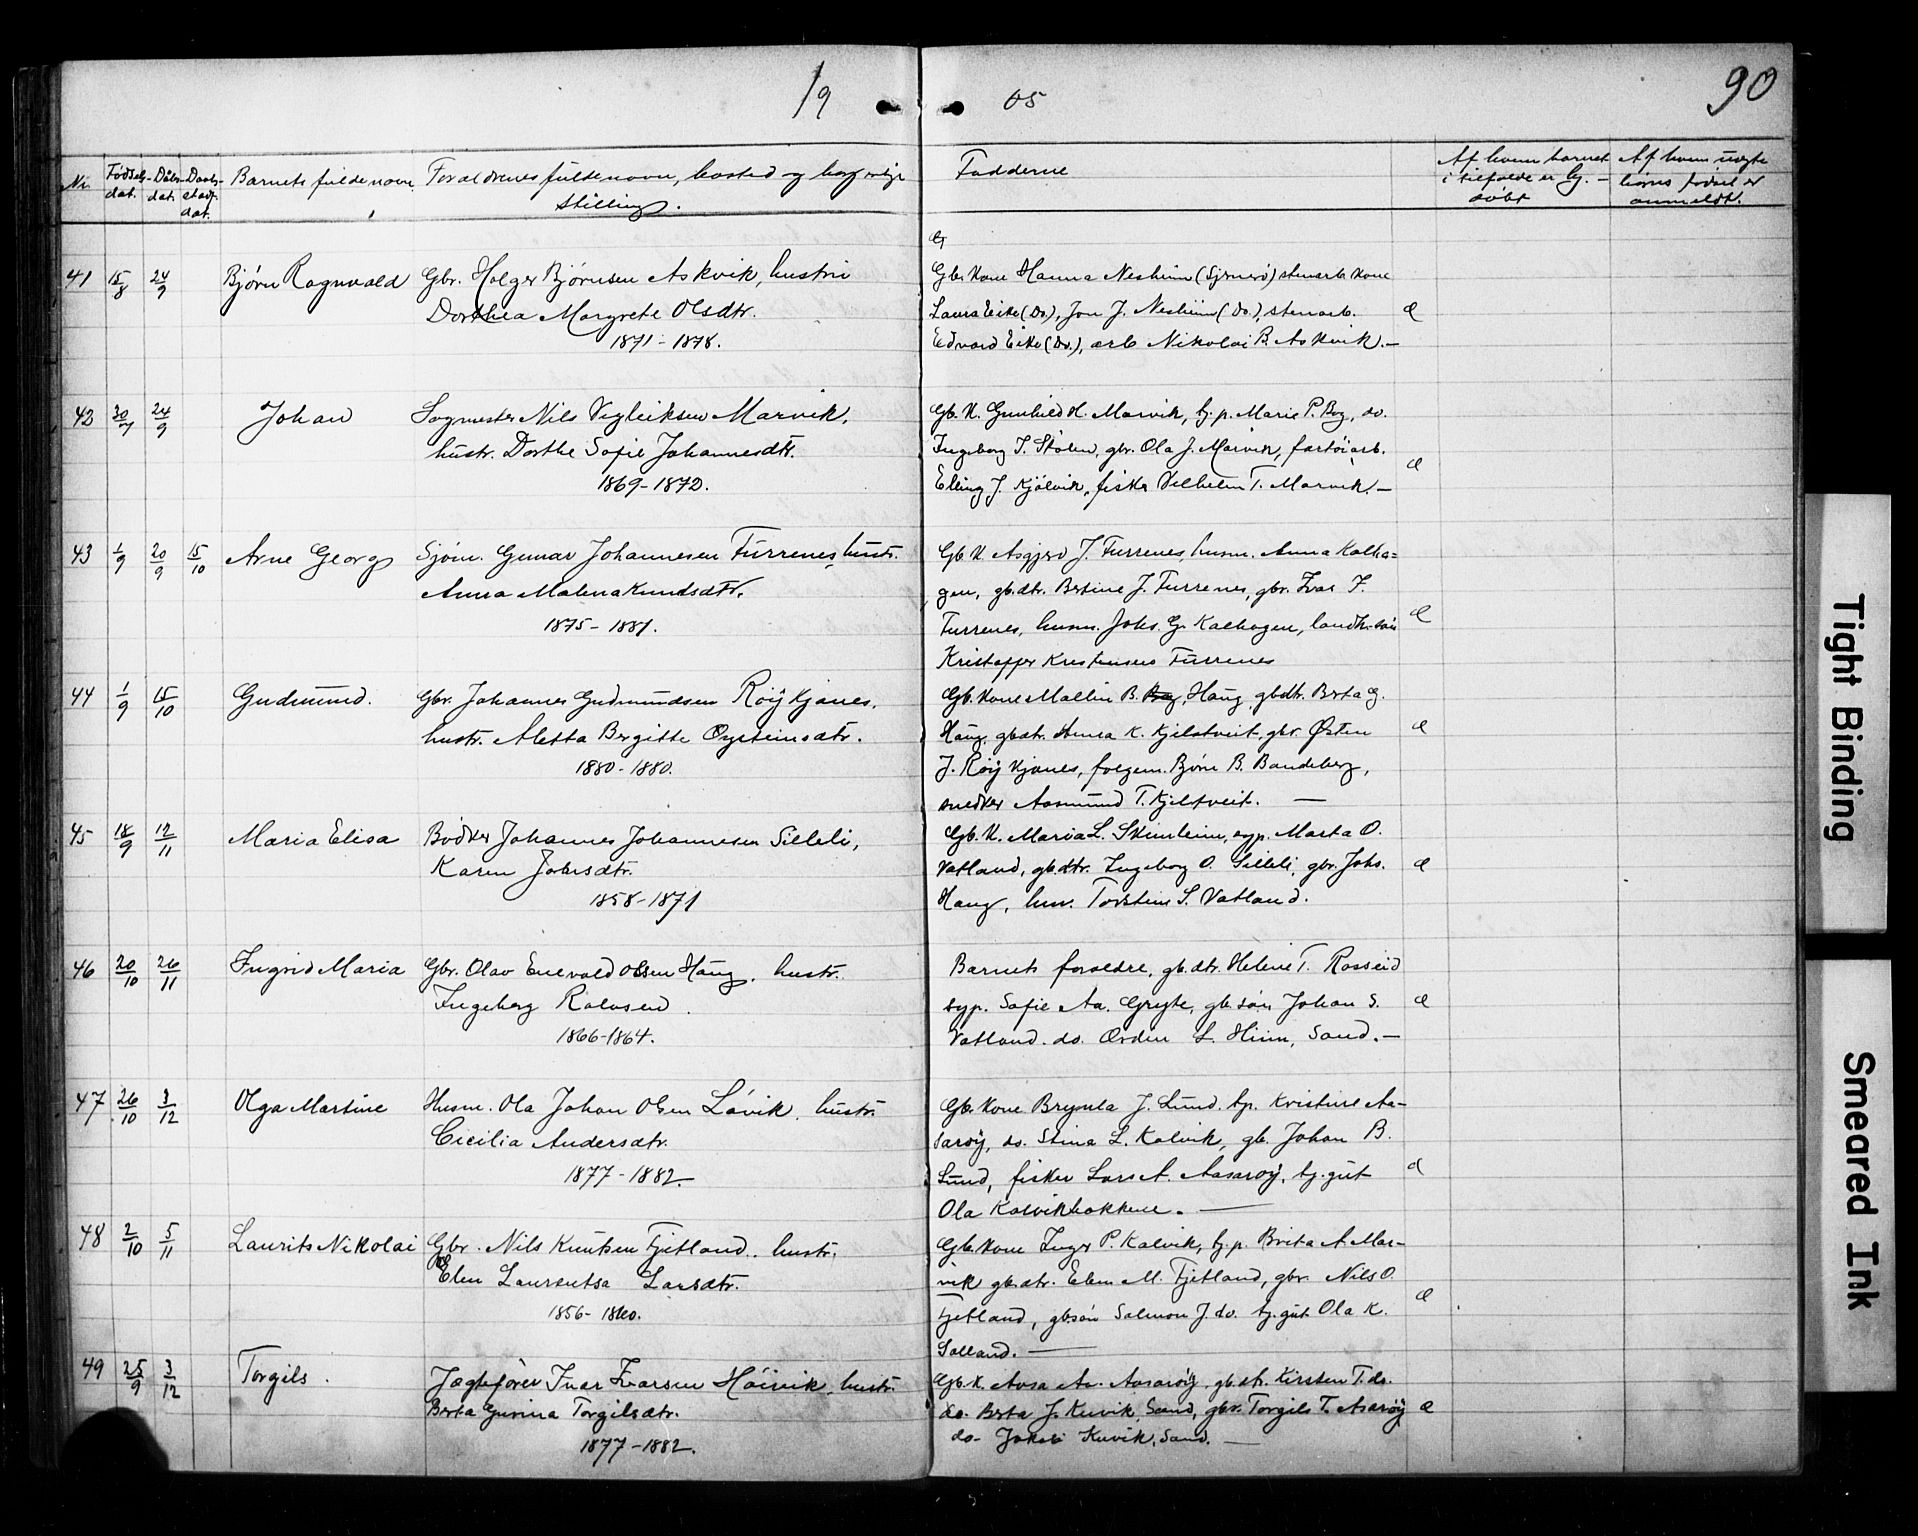 19
05
90
Nr.
Fødsels-
dat.
Dåbs-
dat.
Daabs-
dat.
Barnets fulde navn
Forældrenes fulde navn, bosted og borgerlige
stilling.
Fadderne
Af hvem barnet
i tilfælde er hj.-
døbt
Af hvem uægte
børns fødsel er
anmeldt.
41 15/8 24/9 Bjørn Ragnvald Gbr. Holger Bjørnsen Askvik, hustru
Dorthea Margrete Olsdtr.
1871-1878.
Gbr. kone Hanna Nesheim (Sjernerø) stenarb. kone
Laura Eike (Do.), Jon J. Nesheim (Do.), stenarb.
Edvard Eike (Do.), arb Nikolai B. Askvik.—
42 30/7 24/9 Johan Sagmester Nils Vigleiksen Marvik,
hustr. Dorthe Sofie Johannesdtr.
1869-1872.
Gb. K. Gunhild H. Marvik, tj. p. Marie P. Bog, do.
Ingeborg T. Stølen, gbr. Ola J. Marvik, fartøiarb.
Elling J. Kjølvik, fisker Vilhelm T. Marvik.—
43 1/9 20/9 15/10 Arne Georg Sjøm. Gunnar Johannesen Furrenes, hustr.
Anna Malena Knudsdtr.
1875-1881.
Gb. K. Asgjerd J. Furrenes, husm. Anna Kalha-
gen, gb.dtr. Bertine J. Furrenes, gbr. Ivar I.
Furrenes, husm. Johs. G. Kalhagen, landh. søn
Kristoffer Kristensen Furrenes
44 1/9 15/10 Gudmund. Gbr. Johannes Gudmundsen Røykjenes,
hustr. Aletta Bergitte Øysteinsdtr.
1880-1880.
Gb. kone Mallin B. Haug, gbdtr. Berta G.
Haug, gbdtr. K. Kjilstveit, gbr. Østen
J. Røykjenes, folgem. Bjørn B. Bandeberg,
snedker Aasmund T. Kjilstveit. —
45 18/9 12/11 Maria Elisa Bødker Johannes Johannesen Silleli,
Karen Johsdtr.
1858-1871
Gb. K. Maria L. Skimleim, syp. Marta O.
Vatland, gb.dtr. Ingeborg O. Silleli, gbr. Johs.
Haug, hus. Torstein S. Vatland.
46 20/10 26/11 Ingrid Maria Gbr. Olav Enevald Olsen Haug, hustr.
Ingeborg Rolvsen.
1866-1864.
Barnets foreldre, gb.dtr. Helene T. Rosseid
syp. Sofie Aa. Gryte, gb. søn Johan S.
Vatland. do. Orden L. Hiim, Sand.—
47 26/10 3/12 Olga Martine Husm. Ola Johan Olsen Løvik, hustr.
Cicilia Andersdtr.
1877-1882.
Gb. kone Brynla J. Lund, tp. Kristine Aa-
sarøy, do. Stina L. Kalvik, gb. Johan B.
Lund, fisker Lars A. Aasarøy, tj. gut
Ola Kalvikbakkene. —
48 2/10 5/11 Laurits Nikolai Gbr. Nils Knutsen Fjetland, hustr.
Elen Laurentsa Larsdtr.
1856-1860.
Gb. kone Inger P. Kalvik, tj. p. Brita A. Mar-
vik gb.dtr. Elen M. Fjetland, gbr. Nils O.
Fjetland, gb.søn Salmon J. do. tj. gut Ola K.
Solland. —
49 25/9 3/12 Torgils. Jagtefører Ivar Ivarsen Høivik, hustr.
Berta Gurina Torgilsdtr.
1877-1882.
Gb. K. Aasa Aa. Aasarøy, gb. dtr. Kirsten T. do.
do. Berta J. Kuvik, Sand, gbr. Torgils T. Asarøy
do. Jakob Kuvik, Sand. —
Tight Binding
Smeared Ink